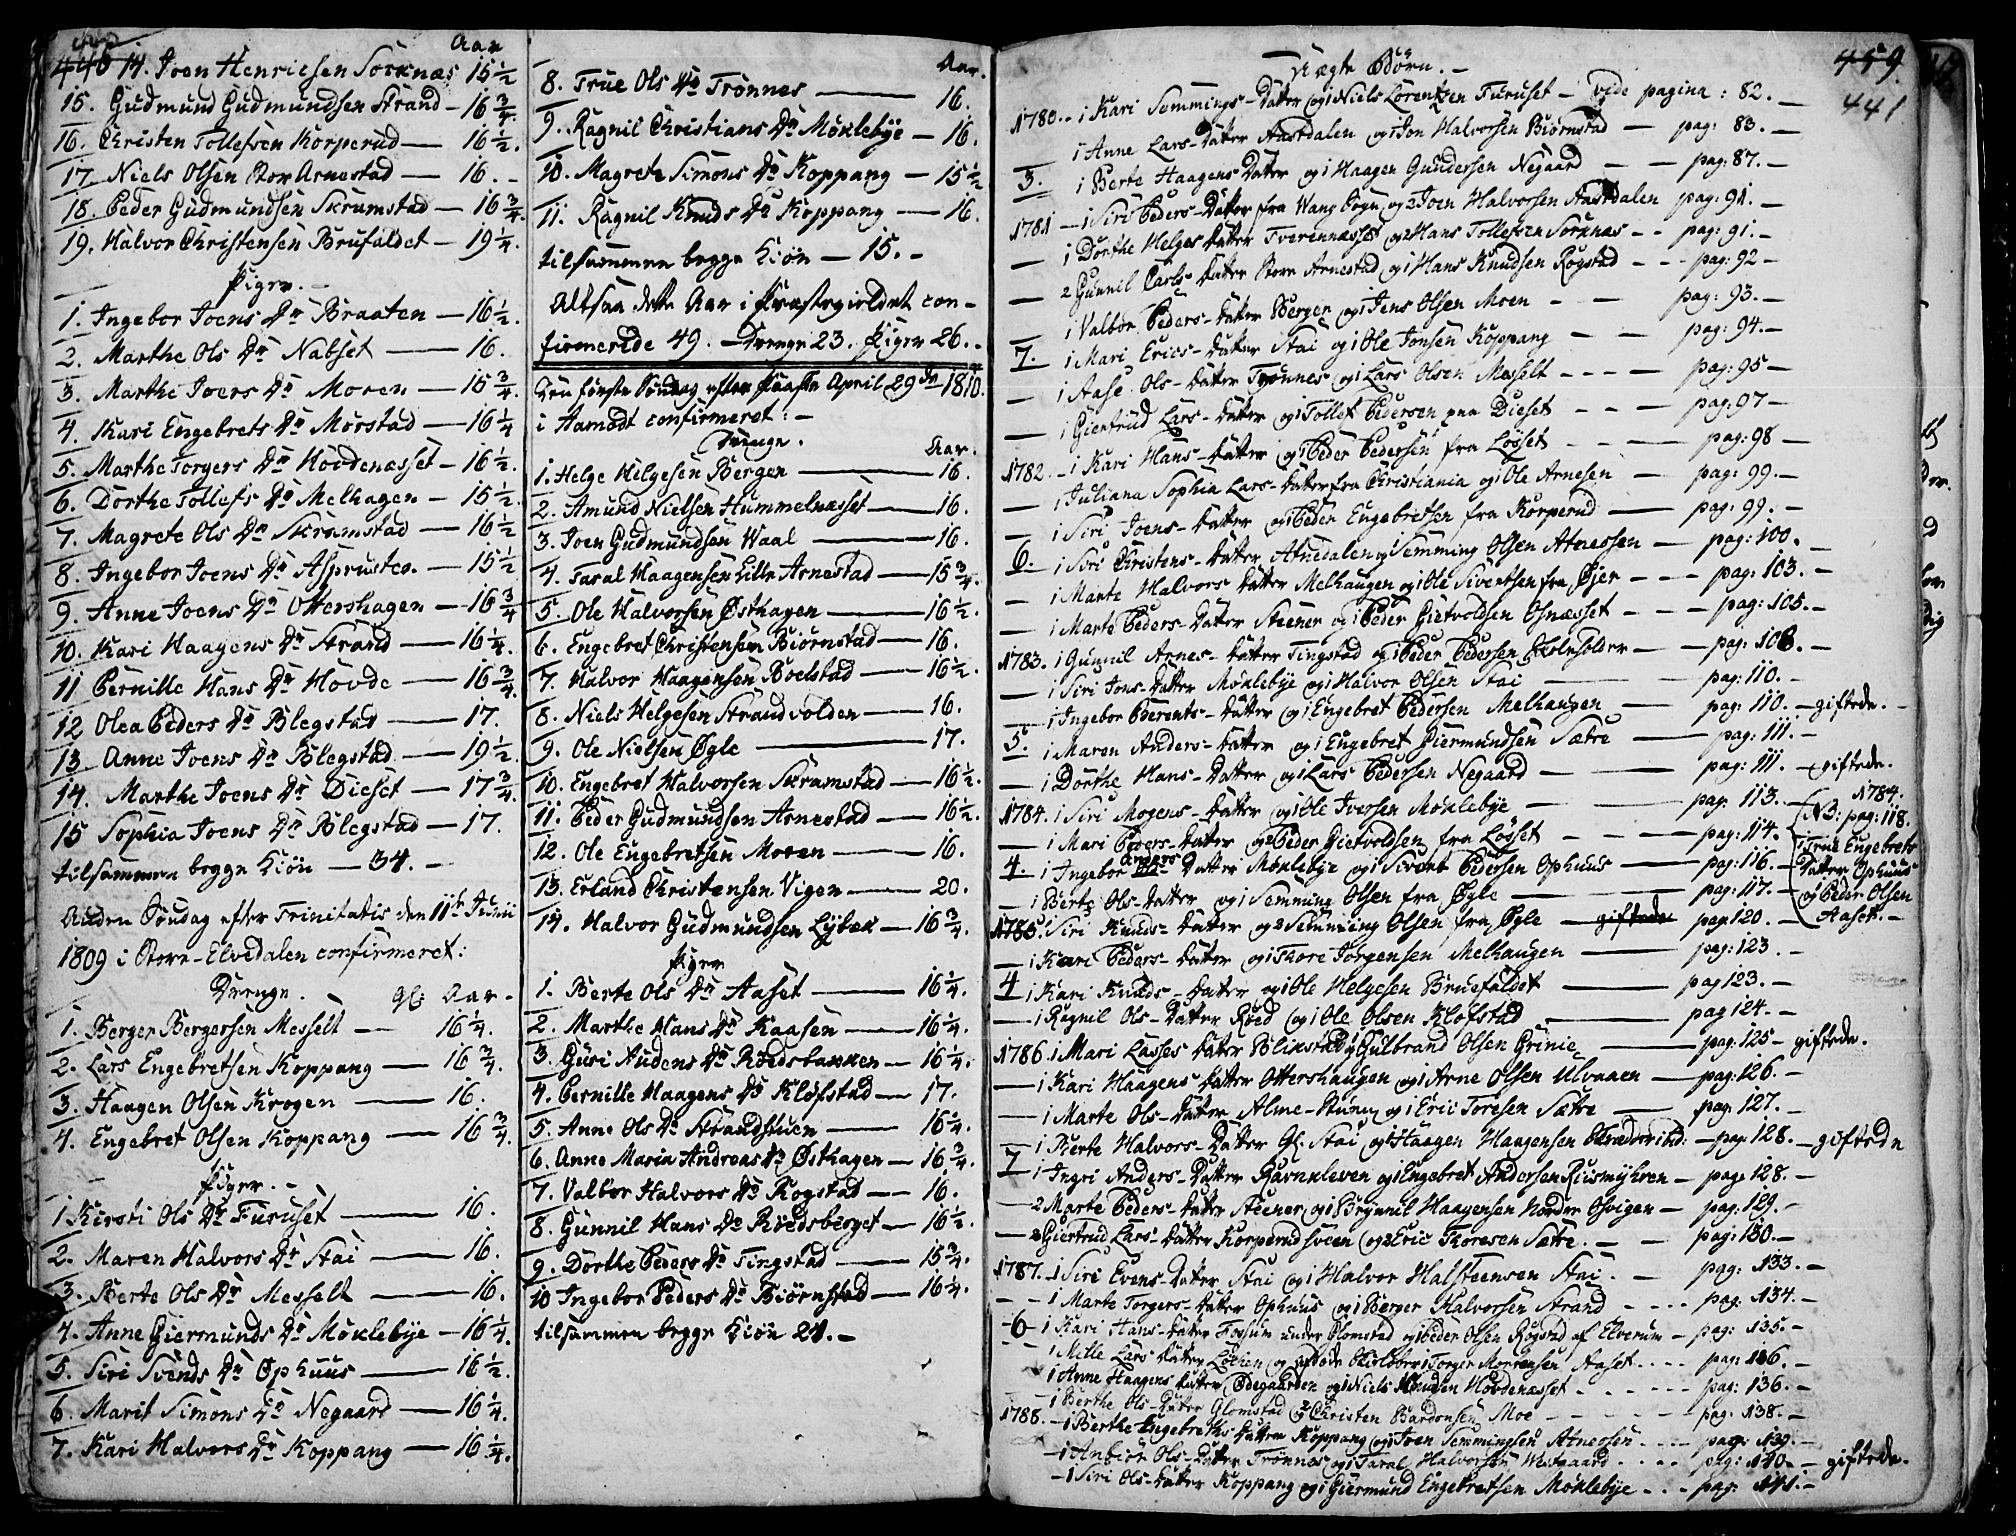 440 Aar
14. Joen Henriksen Sorknæs 15 1/2
15. Gudmund Gudmundsen Strand – 16 3/4.
16. Christen Tollefsen Korperud — 16 1/2.
17. Niels Olsen Stor Arnestad — 16. –
18. Peder Gudmundsen Skramstad – 16 3/4.
19. Halvor Christensen Brufaldet – 19 1/4.
Piger. –
1. Ingebor Joens Dr Braaten – 16 1/2.
2. Marthe Ols Dr Nabset — 16.
3. Marthe Joens Dr Moren – 15 3/4.
4. Kari Engebrets Dr Mørstad – 16 1/4
5. Marthe Torgers Dr Hovdenæsset – 16 1/2.
6. Dorthe Tollefs Dr Melhagen – 15 1/2.
7. Magrete Ols Dr Skramstad – 16 1/2
8. Ingebor Joens Dr Asprusten. – 15 1/2
9. Anne Joens Dr Ottershagen – 16 3/4
10. Kari Haagens Dr Strand – 16 1/4.
11 Pernille Hans Dr Hovde – 16 3/4.
12 Olea Peders Dr Blegstad — 17.
13. Anne Joens Dr Blegstad – 19 1/2.
14. Marthe Joens Dr Dieset – 17 3/4.
15 Sophia Joens Dr Blegstad – 17.
tilsammen begge Kiön — 34. –
Anden Søndag efter Trinitatis den 11te Junii
1809 i Store-Elvedalen confirmeret:
Drenge. gl: Aar –
1. Berger Bergersen Messelt — 16 1/4.
2. Lars Engebretsen Koppang — 16 3/4.
3. Haagen Olsen Krogen — 16.
4. Engebret Olsen Koppang — 16 3/4.
Piger. –
1 Kirsti Ols Dr Furuset — 16.
2. Maren Halvors Dr Stai — 16.
3. Berte Ols Dr Messelt — 16.
4. Anne Giermunds Dr Møklebye – 16 1/4.
5. Siri Svends Dr Ophuus — 16 1/2.
6. Marit Simons Dr Negaard — 16 1/4.
7. Kari Halvors Dr Koppang — 16 1/4.
Aar.
8. True Ols Dr Trønnes — 16.
9. Ragnil Christians Dr Møklebye – 16.
10. Magrete Simons Dr Koppang – 15 1/2
11. Ragnil Knuds Dr Koppang — 16.
tilsammen begge Kiön – 15. –
Altsaa dette Aar i Præstegieldet con-
firmerede 49. – Drenge 23. Piger 26. –
Den første Søndag efter Paaske April 29de 1810.
i Aamodt confirmeret: –
Drenge. Aar.
1. Helge Helgesen Bergen — 16.
2. Amund Nielsen Hummelnæsset — 16.
3. Joen Gudmundsen Waal — 16.
4. Taral Haagensen Lille Arnestad — 15 3/4.
5. Ole Halvorsen Østhagen — 16 1/2.
6. Engebret Christensen Biørnstad — 16.
7. Halvor Haagensen Boelstad — 16 1/2.
8. Niels Helgesen Strandvolden — 16.
9. Ole Nielsen Øgle — 17.
10. Engebret Halvorsen Skramstad — 16 1/2.
11. Peder Gudmundsen Arnestad — 16 1/2.
12. Ole Engebretsen Moren — 16.
13. Erland Christensen Vigen — 20.
14. Halvor Gudmundsen Lybæk – 16 3/4.
Piger
1. Berte Ols Dr Aaset — 16 1/4.
2. Marthe Hans Dr Kaasen — 16 1/4.
3. Guri Audens Dr Rødsbakken – 16 1/4.
4. Pernille Haagens Dr Kløfstad — 17.
5. Anne Ols Dr Strandstuen — 16 1/4.
6. Anne Maria Andreas Dr Østhagen — 16 3/4.
7. Valbor Halvors Dr Rogstad — 16.
8. Gunnil Hans Dr Rødsberget – 16 1/2.
9. Dorthe Peders Dr Tingstad — 15 3/4.
10 Ingebor Peders Dr Biørnstad — 16 1/4.
tilsammen begge Kiön 24. –
459
441
Uægte Børn. –
1780. – 1 Kari Semmings-Datter og 1 Niels Lorentzen Furuset – vide pagina: 82. –
1 Anne Lars-Datter Aastdalen og 1 Jon Halvorsen Biørnstad — pag: 83. –
3. 1 Berte Haagens Datter og 1 Haagen Gundersen Negaard – – pag: 87. –
1781 – 1 Siri Peders-Datter fra Wang Sogn og 2 Joen Halvorsen Aastdalen pag: 91. –
— 1 Dorthe Helges Datter Tverennæsset og 2 Hans Tollefsen Sorknæs – – pag: 91. –
— 2 Gunnil Carls-Datter Store Arnestad og 1 Hans Knudsen Rogstad – – – pag: 92 –
1 Valbor Peders-Datter Bergen og 1 Jens Olsen Moen – — pag: 93. –
7. 1 Mari Erics-Datter Stai og 1 Ole Jonsen Koppang – — pag: 94. –
— 1 Aase Ols-Datter Trønnes og 1 Lars Olsen Messelt – – – – pag: 95 –
— 1 Giertrud Lars-Datter og 1 Tollef Pedersen paa Dieset – – – pag: 97 –
1782. – 1 Kari Hans-Datter og 1 Peder Pedersen fra Løset – – – — pag: 98 –
— 1 Juliana Sophia Lars-Datter fra Christiania og 1 Ole Arnesen — pag: 99. –
— 1 Siri Joens-Datter og 1 Peder Engebretsen fra Korperud — pag: 99. –
6. – 1 Siri Christens-Datter Atnedalen og 1 Semming Olsen Atneosen — pag: 100. –
— 1 Marte Halvors Datter Melhaugen og 1 Ole Sivertsen fra Øjer – – – pag: 103. –
— 1 Marte Peders-Datter Steener og 1 Peder Gietvoldsen Osnæsset – – – pag: 105. –
1783. 1 Gunnil Arnes-Datter Tingstad og 1 Peder Pedersen — pag: 108. –
— 1 Siri Jons-Datter Møklebye og 1 Halvor Olsen Stai — pag: 110. –
— 1 Ingebor Berents-Datter og 1 Engebret Pedersen Melhaugen — pag: 110. – giftede. –
5. 1 Maren Anders-Datter og 1 Engebret Giermundsen Sætre — pag: 111. –
— 1 Dorthe Hans-Datter og 1 Lars Pedersen Negaard — pag: 111. – giftede.
1784. 1 Siri Mogens-Datter og 1 Ole Iversen Møklebye — pag. 113. –
— 1 Mari Peders-Datter og 2 Peder Gietvoldsen fra Løset – – – — pag: 114. –
4 – 1 Ingebor Anders Datter Møklebye og 1 Sivert Pedersen Ophuus — pag: 116. –
— 1 Berte Ols-Datter og 1 Semming Olsen fra Øgle — pag: 117. –
1784.
NB: pag: 118.
Trine Engebrets
Datter Ophuus
og Peder Olsen
Aaset. –
1785. 1 Siri Knuds-Datter og 2 Semming Olsen fra Øgle – giftede pag. 120. –
— 1 Kari Peders-Datter og 1 Thore Jørgensen Melhaugen — pag: 123. –
4 1 Kari Knuds-Datter og 1 Ole Helgesen Bruefaldet — pag 123. –
— 1 Ragnil Ols-Datter Røed og 1 Ole Olsen Kløfstad — pag 124. –
1786. 1 Mari Lasses Datter Blikstad og Gulbrand Olsen Grinie — pag. 125 – giftede.
— 1 Kari Haagens Datter Ottershaugen og 1 Arne Olsen Ulvaaen — pag: 126. –
— 1 Marte Ols-Datter Alme-Stuen og 1 Eric Toresen Sætre — pag. 127. –
7 – 1 Berte Halvors-Datter Gl. Stai og 1 Haagen Haagensen ibd: – pag. 128. – giftede
— 1 Ingri Anders-Datter Ravnkleven og 1 Engebret Andersen Riismyhren – pag: 128. –
— 2 Marte Peders-Datter Steener og 1 Brynnil Haagensen Nordre Osvigen – pag: 129. –
— 2 Giertrud Lars-Datter Korperud Sveen og 2 Eric Thoresen Sætre. – – pag: 130. –
1787. – 1 Siri Evens-Datter Stai og 1 Halvor Halsteensen Stai. – pag: 133. –
– – 1 Marte Torgers-Datter Ophuus og 1 Berger Halvorsen Strand – – – – pag: 134. –
– 6 – 1 Kari Hans-Datter Fossum under Glomstad og 1 Peder Olsen Rogstad af Elverum – pag: 135. –
1 Mille Lars Datter Løchen og 1 Torger Mortensen Aaset . . . . pag: 136. –
1 Anne Haagens Datter Ødegaarden og 1 Niels Knudsen Hovdenæsset – – – – – pag: 136. –
– 1 Berthe Ols-Datter Glomstad og 2 Christen Bardonsen Moe – – – – – pag: 138. –
1788. – 1 Berthe Engebrets Datter Koppang og 1 Joen Semmingsen Atneosen . . . pag: 139. –
– 1 Anbiör Ols-Datter Trønnes og 1 Taral Halvorsen Westgaard . . . . pag: 140. – giftede.
– 1 Siri Ols-Datter Koppang og 1 Giermund Engebretsen Møklebye . . . pag: 141. –